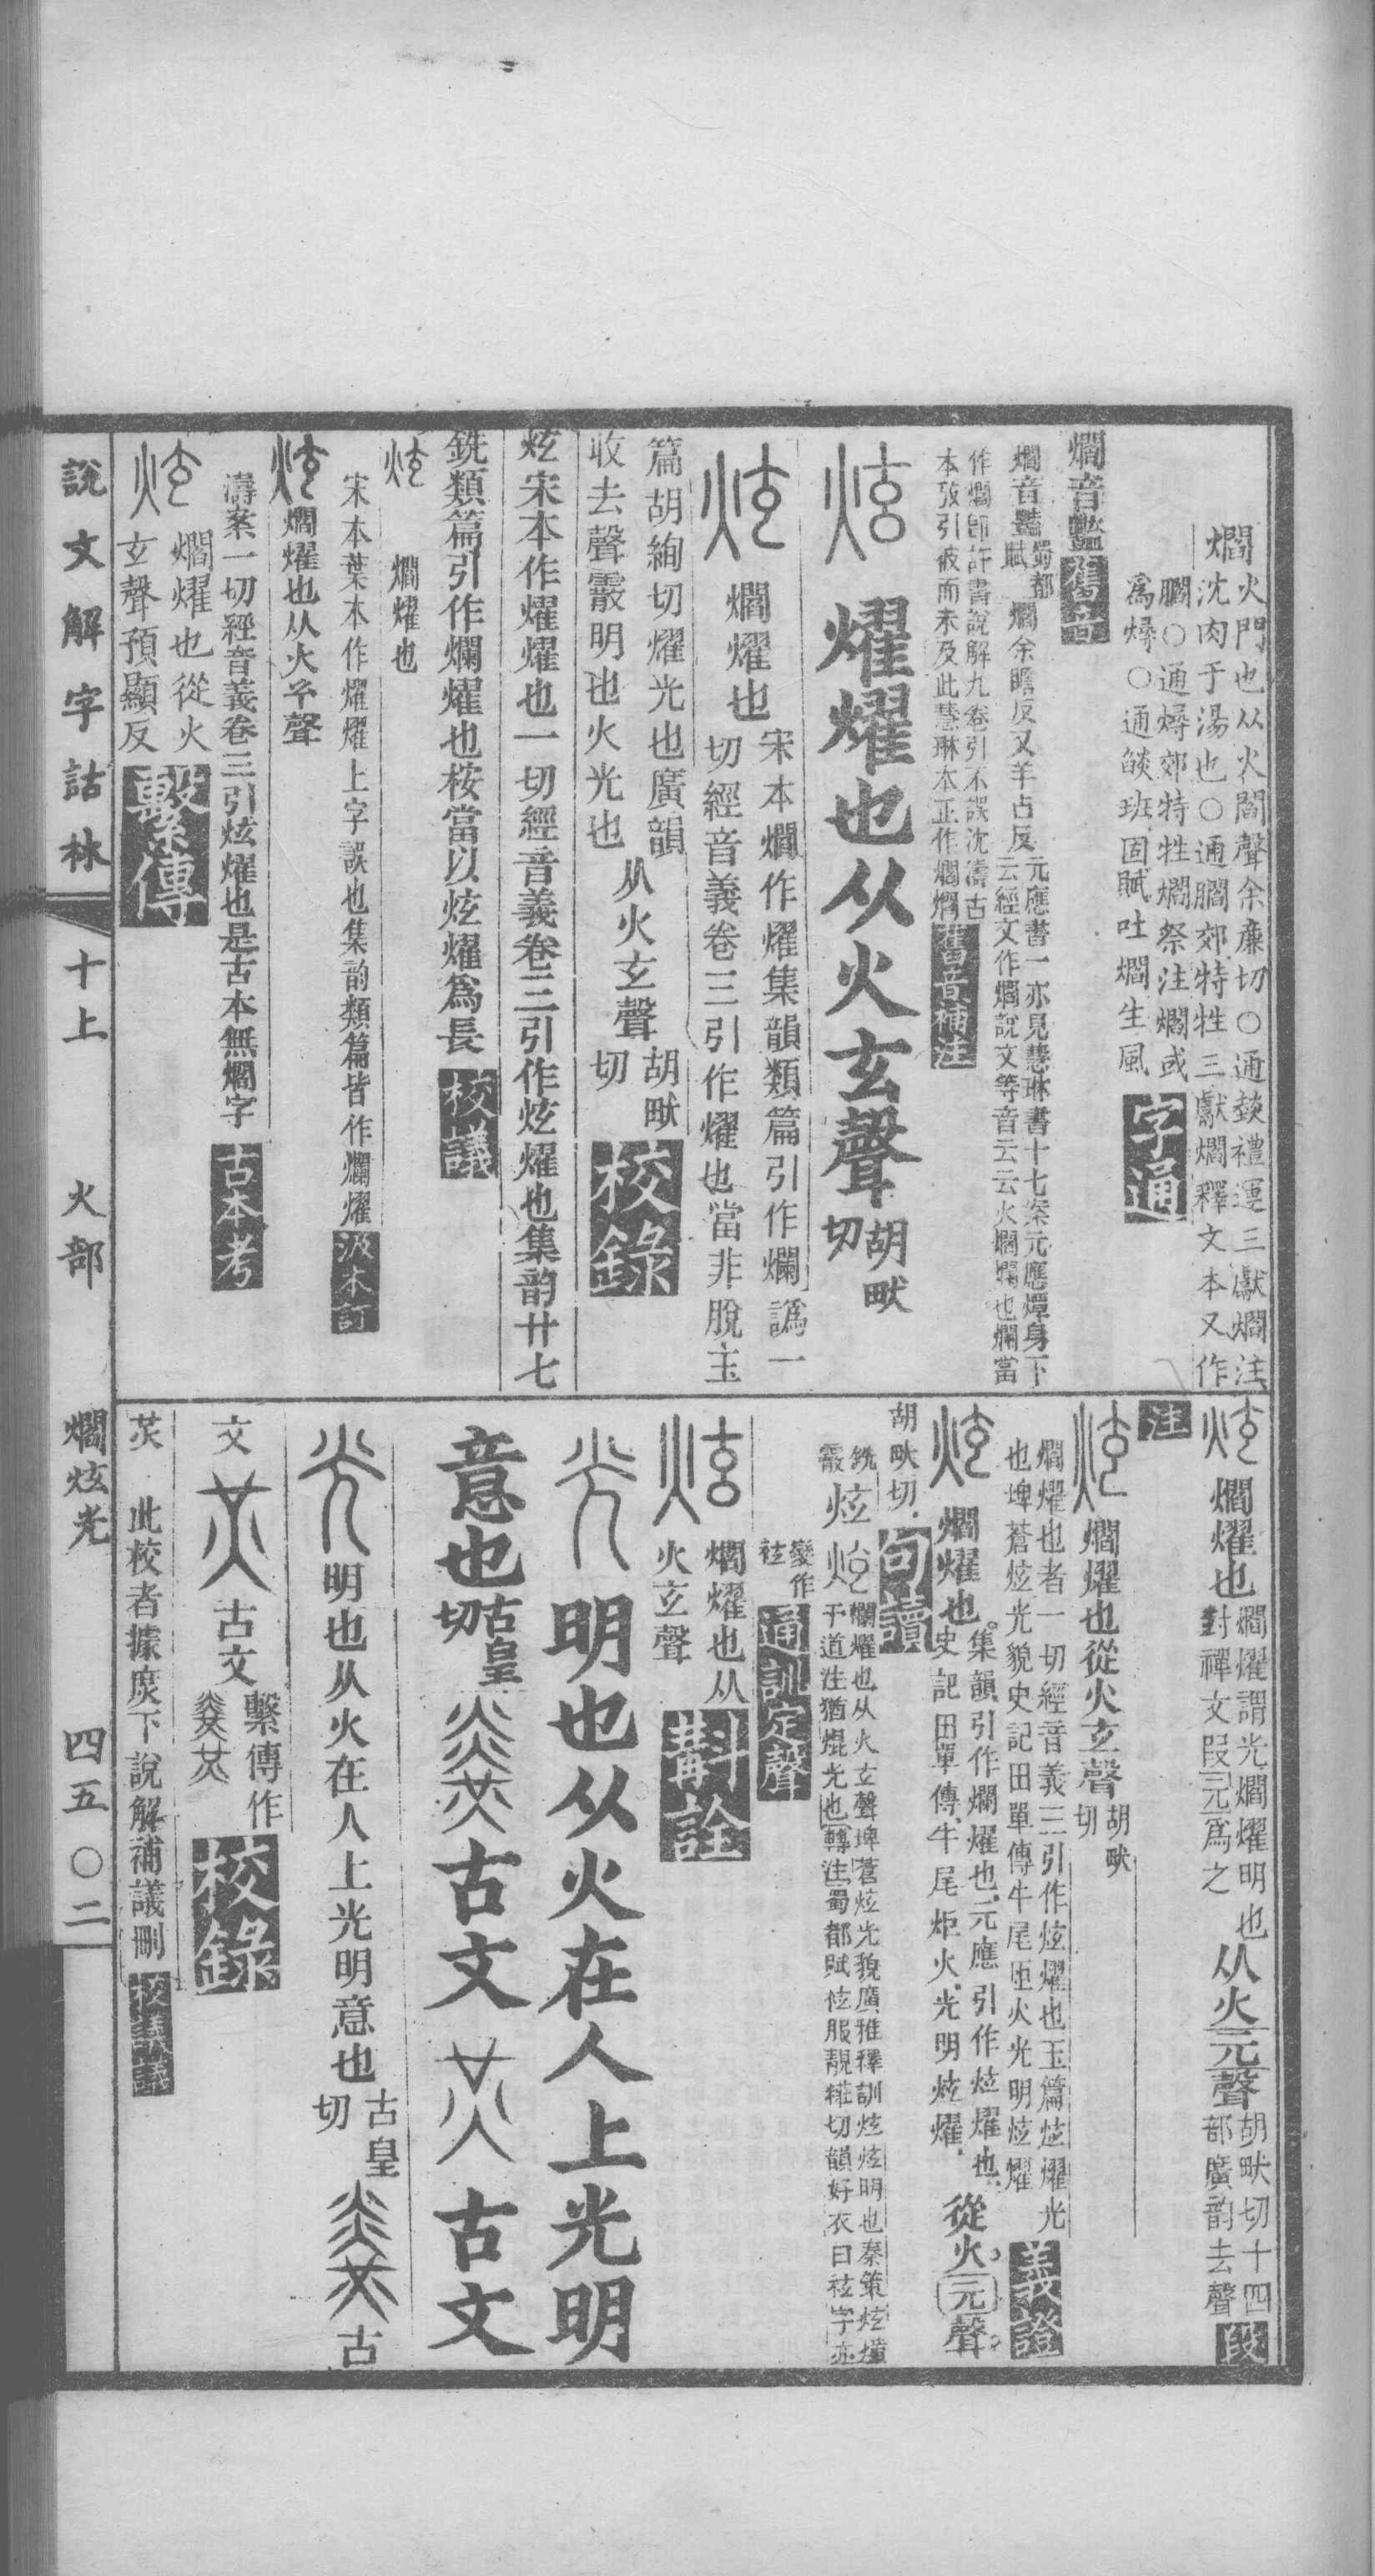 爓火門也从火閻聲余廉切○通燅禮運三獻爓注
沈肉于湯也○通膶郊特牲三獻爓釋文本又作
膶○通燖郊特牲爓祭注爓或
爲燖○通燄班固賦吐爓生風 字通
爓音豔 舊音
爓音豔蜀都賦爓余瞻反又羊占反元應書一亦見慧琳書十七案元應燂身下
云經文作爓說文等音云云火爓爓也爛當
作爓卽許書說解九卷引不誤沈濤古
本攷引彼而未及此慧琳本正作爓爓 舊音補注
炫 燿燿也从火玄聲胡畎切
炫 爓燿也宋本爓作燿集韻類篇引作爛譌一
切經音義卷三引作燿也當非脫玉
篇胡絢切燿光也廣韻
收去聲霰明也火光也从火玄聲胡畎切 校錄
炫宋本作燿燿也一切經音義卷三引作炫燿也集韵廿七
銑類篇引作爛燿也桉當以炫燿爲長 校議
炫 爓燿也
宋本葉本作燿燿上字誤也集韵類篇皆作爛燿 汲本訂
炫爓燿也从火玄聲
濤案一切經音義卷三引炫燿也是古本無爓字 古本考
炫 爓燿也從火
玄聲預顯反 繫傳
炫 爓燿也爓燿謂光爓燿明也
對禪文段元爲之从火元聲胡畎切十四
部廣韵去聲 段
注
炫爓燿也從火玄聲胡畎切
爓燿也者一切經音義三引作炫燿也玉篇炫燿光
也埤蒼炫光貌史記田單傳牛尾炬火光明炫燿 義證
炫 爓燿也集韻引作爛燿也元應引作炫燿也
史記田單傳牛尾炬火光明炫燿從火元聲
胡畎切 句讀
銑霰炫 炫 爛燿也从火玄聲埤蒼炫光貌廣雅釋訓炫炫明也秦策炫熿
于道注猶焜光也轉注蜀都賦袨服靚糚切韻好衣曰袨字亦
變作袨 通訓定聲
炫 爓燿也从
火玄聲 斠詮
光 明也从火在人上光明
意也古皇切 𤎫古文 炗古文
光明也从火在人上光明意也古皇切 𤎫古
文 炗古文繫傳作
𤎫炗 校錄
炗 此校者據庶下說解補議刪 校議議
說文解字詁林 十上 火部 爓炫光 四五〇二